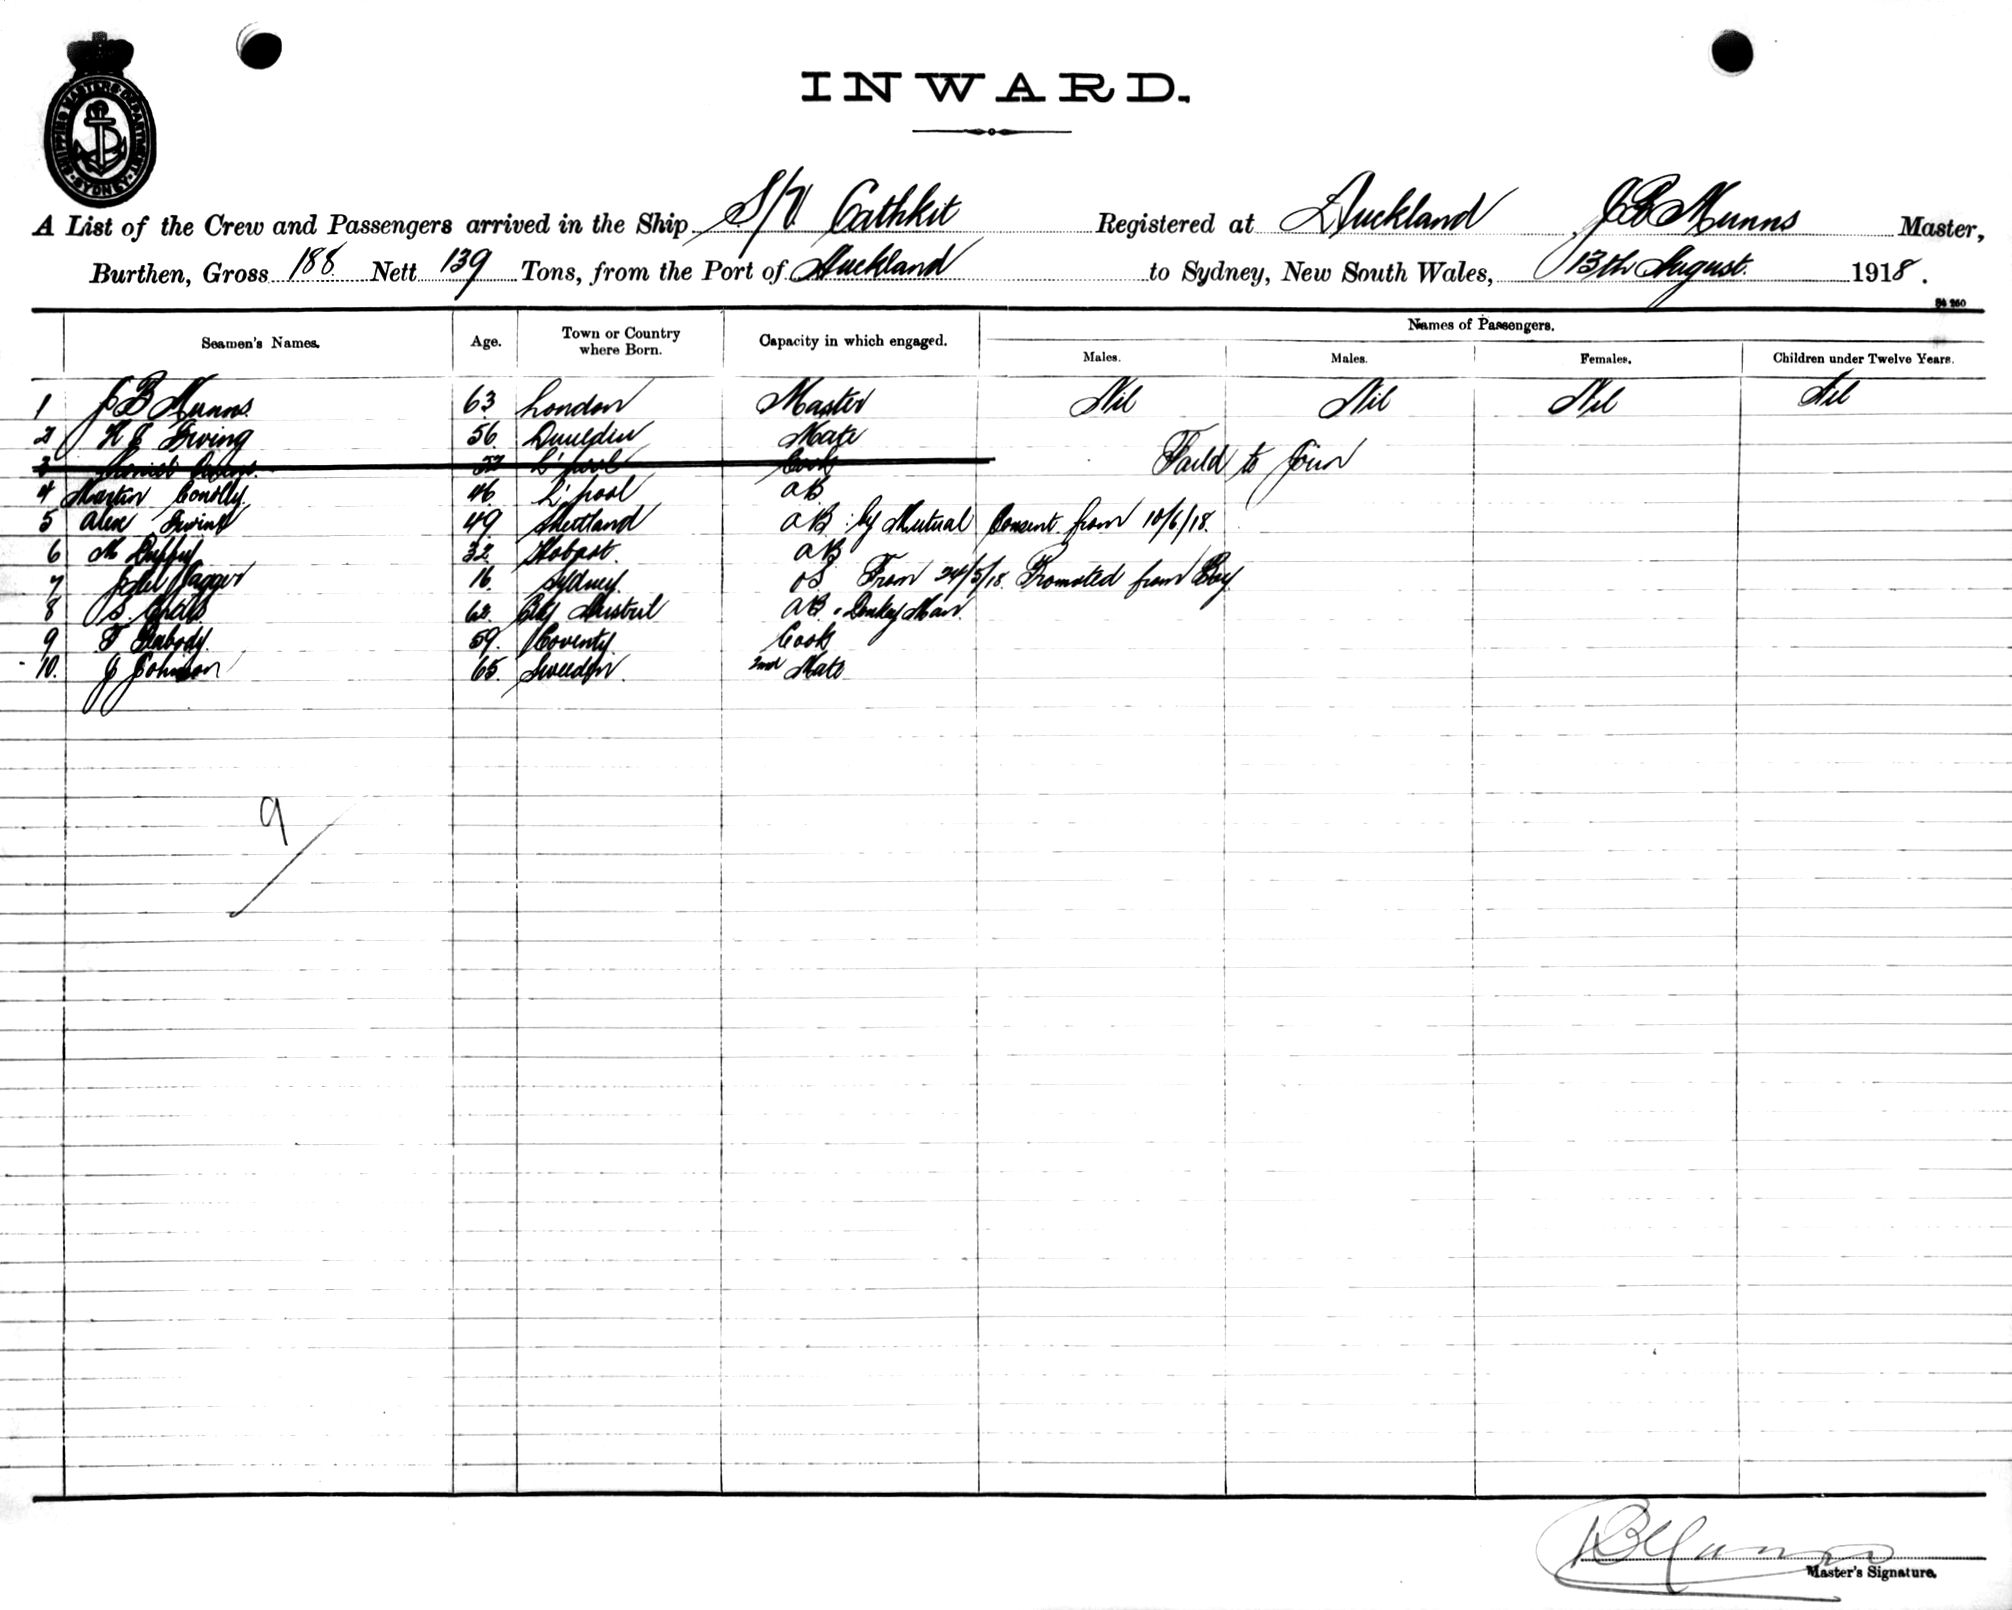 INWARD.
SHIPPING MASTERS DEPARTMENT SYDNEY
A List of the Crew and Passengers arrived in the Ship S/V Cathkit Registered at Auckland J B Nunns Master,
Burthen, Gross 188 Nett 139 Tons, from the Port of Auckland to Sydney, New South Wales, 13th August 1918.
Seamen's Names. Age. Town or Country where Born. Capacity in which engaged. Names of Passengers.
Males. Males. Females. Children under Twelve Years.
1 J B Nunns 63 London Master Nil Nil Nil Nil
2 Irving 56 Dunedin Mate
3 L'pool Cook Faild to join
4 Martin Conolly 46 L'pool AB
5 Alex Irvine 49 Shettland AB by Mutual Consent from 10/6/18.
6 M 32 Hobart. AB
7 16 Sydney. OS From 24/5/18 Promoted from Boy
8 S. 62 AB & Donkey Man
9 F Peabody. 59. Coventy. Cook
10. J Johnson 65. Sweeden. 2nd Mate
9
Master's Signature.